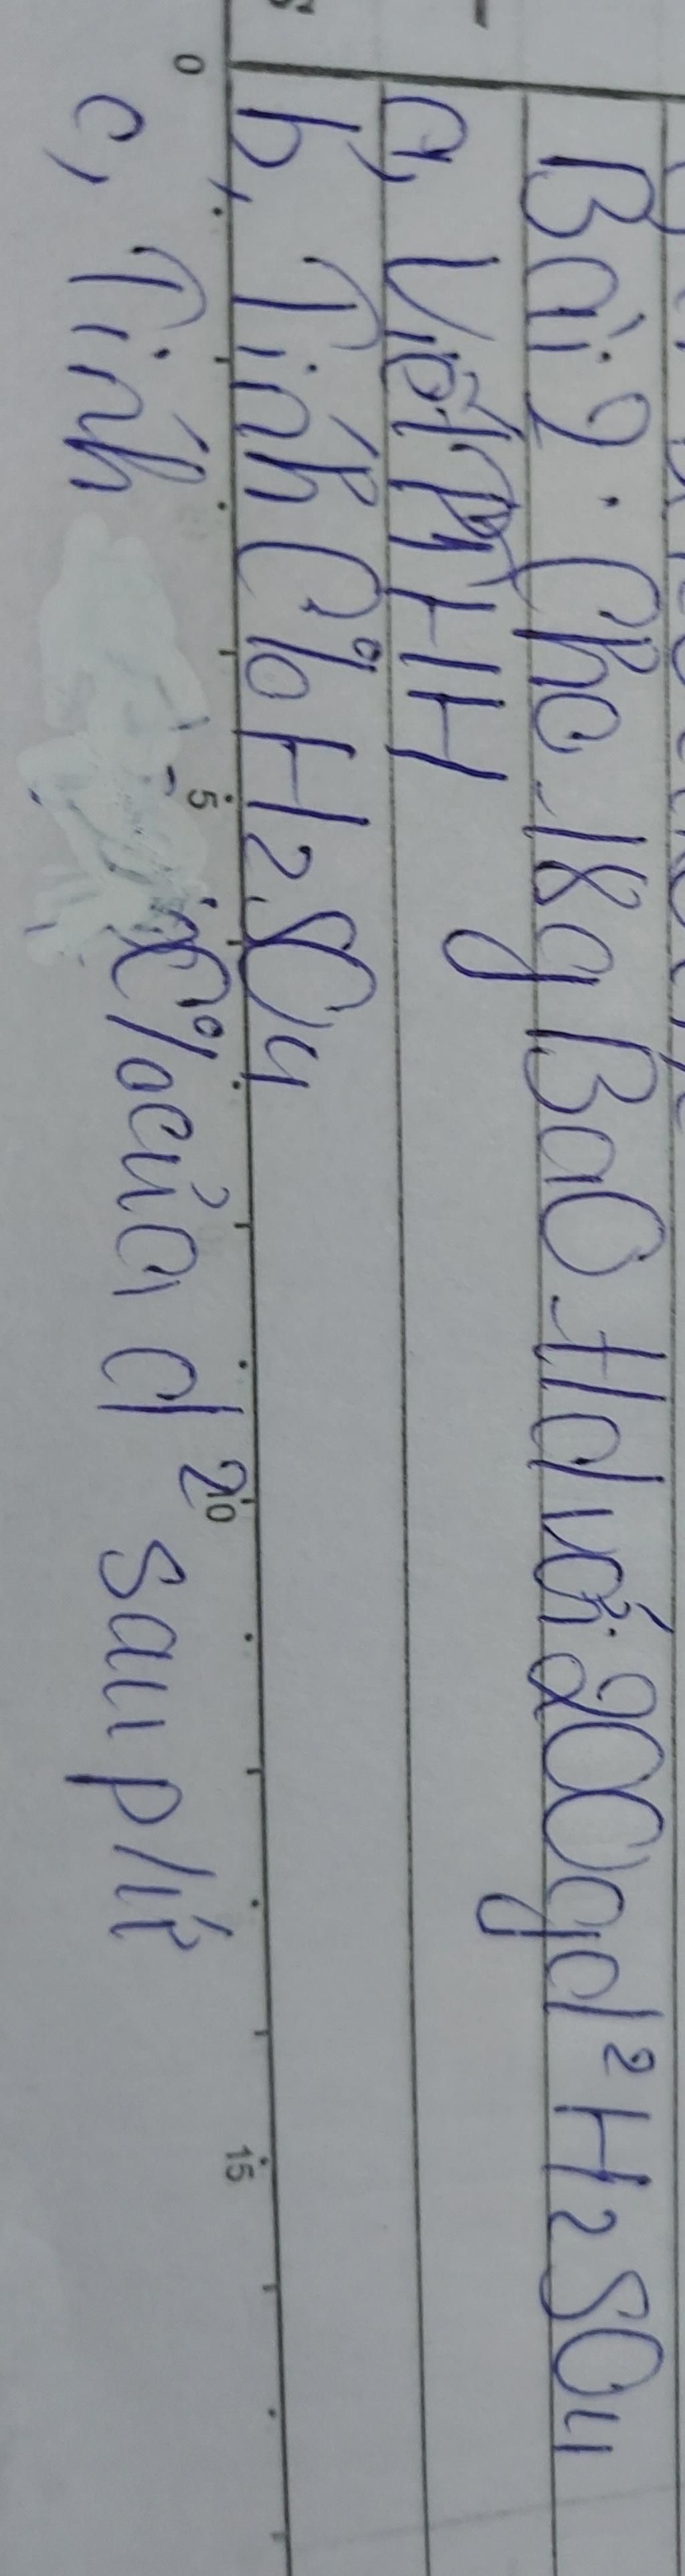 Bài 2: Cho 18g BaO td với 200g d² H2SO4
a, Viết PTHH
b, Tính C% H2SO4
c, Tính C% của d² sau p/ứ
0 5 10 15